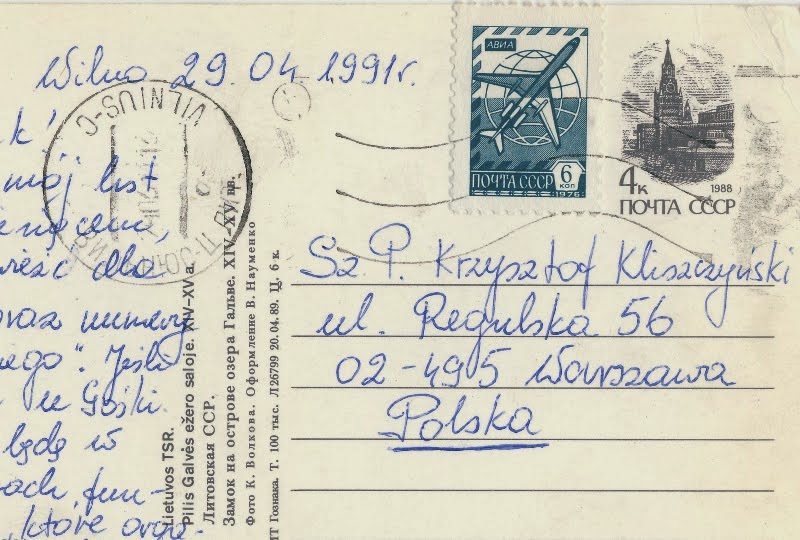 Wilno 29.04 1991r.
VILNIUS-C
АВИА
6 КОП
ПОЧТА СССР
1976
4к
1988
ПОЧТА СССР
mój list
dla
oraz numery
nego". Jeśli
będę w
które
Lietuvos TSR.
Pilis Galvės ežero saloje. XIV-XV a.
Литовская ССР.
Замок на острове озера Гальве. XIV-XV вв.
Фото К. Волкова. Оформление В. Науменко
ИТ Гознака. Т. 100 тыс. Л26799 20.04.89. Ц. 6 к.
Sz P. Krzysztof Kliszczyński
ul. Regulska 56
02-495 Warszawa
Polska